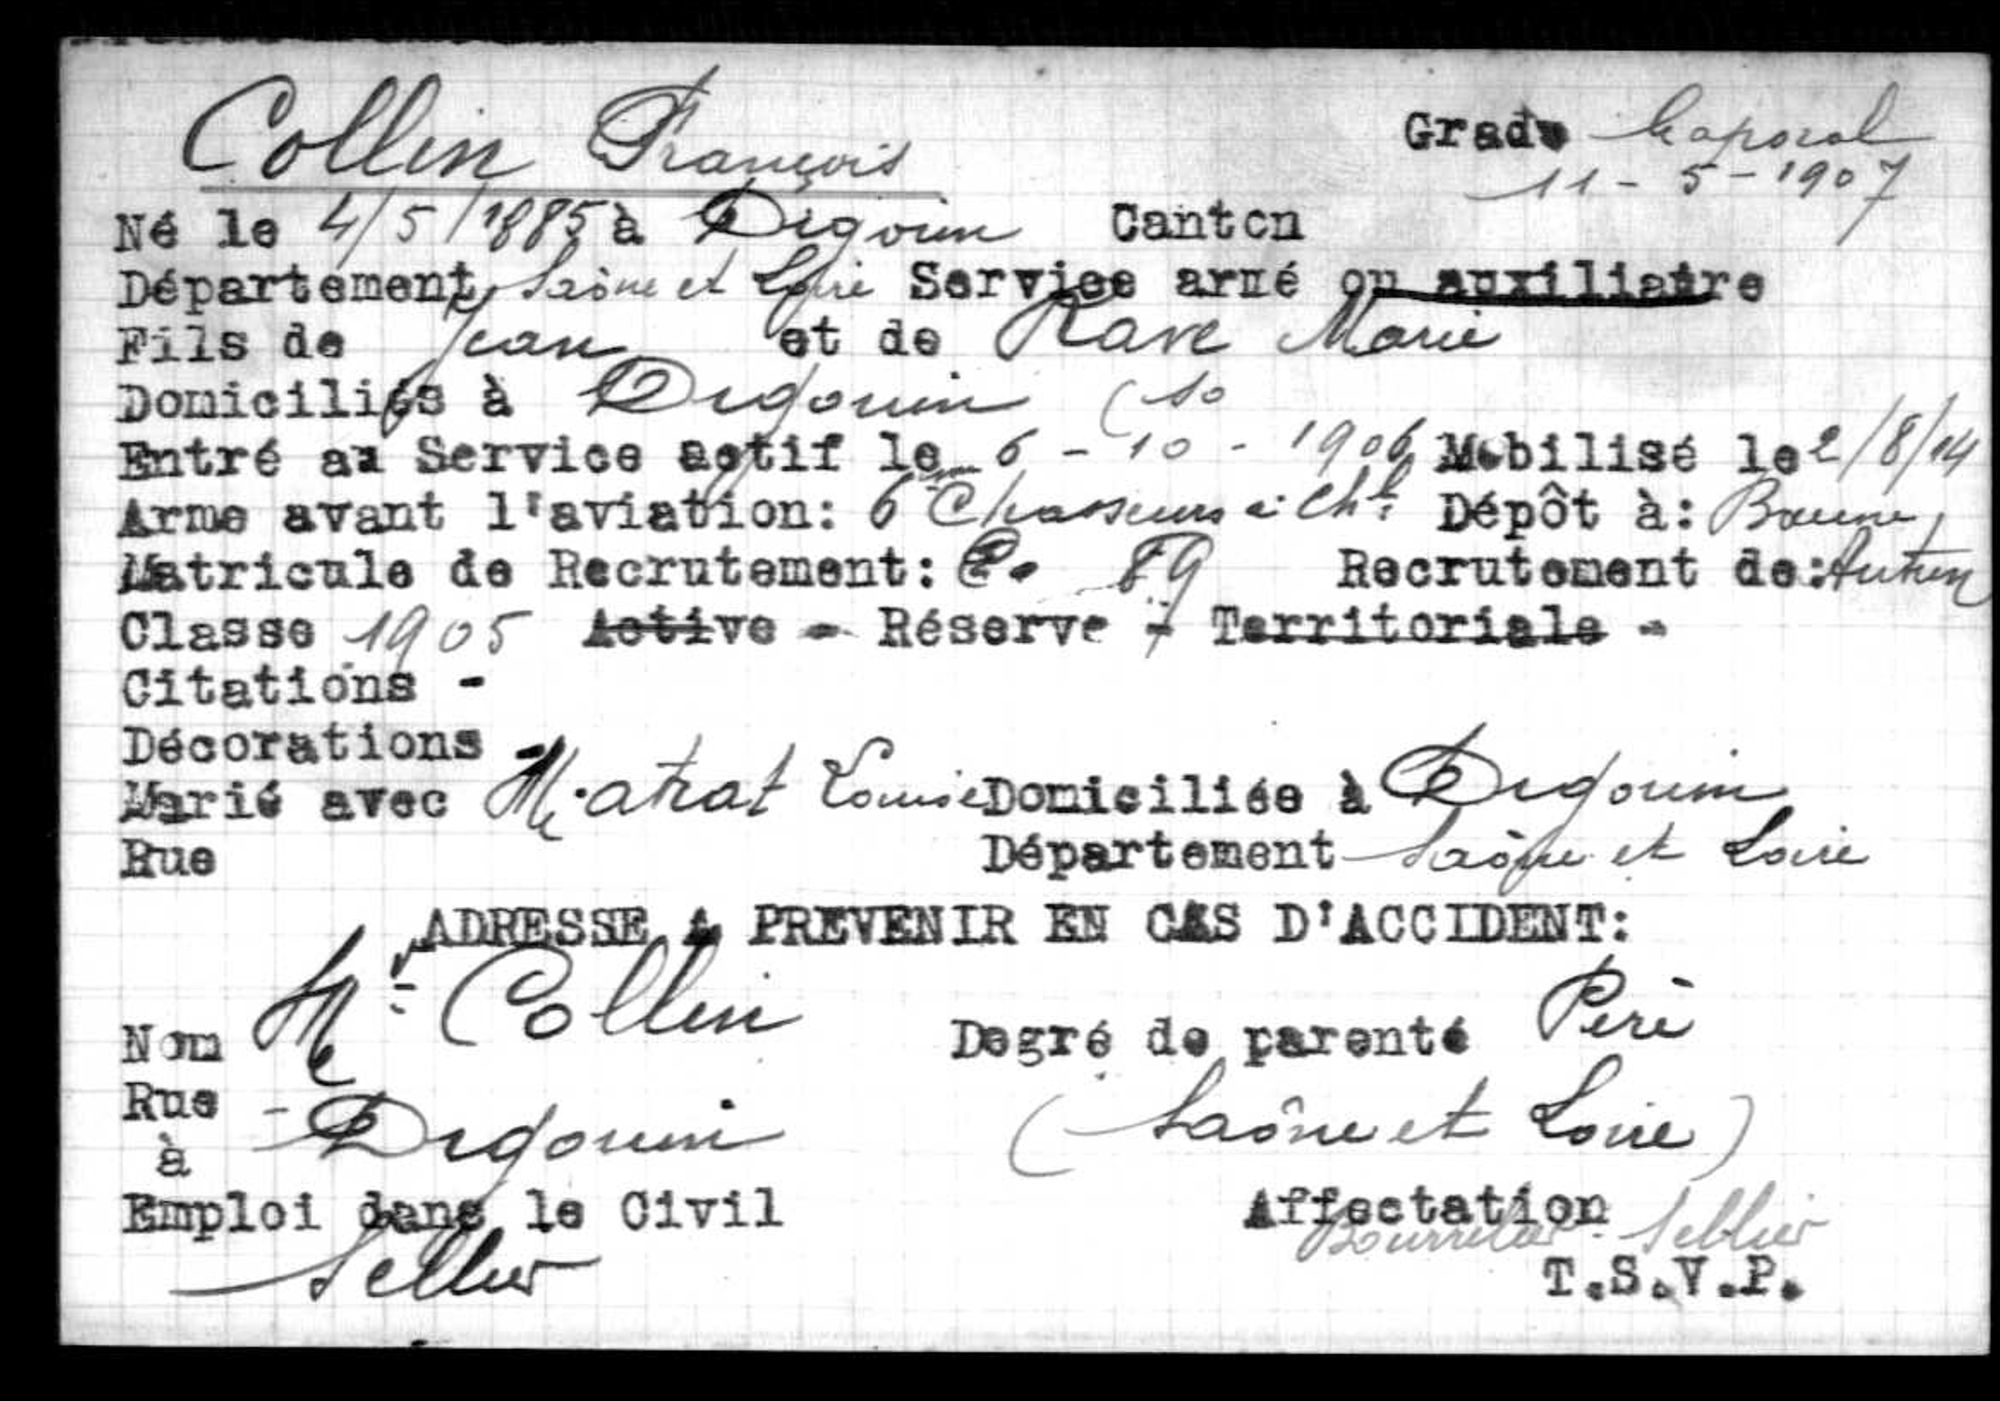 Collin François Grade Caporal
11-5-1907
Né le 4/5/1885 à Digoin Canton
Département Saône et Loire Service armé ou auxiliaire
Fils de Jean et de Rave Marie
Domiciliés à Digoin
Entré au Service actif le 6-10-1906 Mobilisé le 2/8/14
Arme avant l'aviation: 6 Chasseurs à Chl Dépôt à:
Matricule de Recrutement: 89 Recrutement de: Autun
Classe 1905 Active - Réserve - Territoriale -
Citations -
Décorations -
Marié avec Matrat Louise Domiciliée à Digoin
Rue Département Saône et Loire
ADRESSE A PREVENIR EN CAS D'ACCIDENT:
Nom Mr Collin Degré de parenté Père
Rue -
à Digoin (Saône et Loire)
Emploi dans le Civil Affectation
Sellier Bourrelier - Sellier
T.S.V.P.